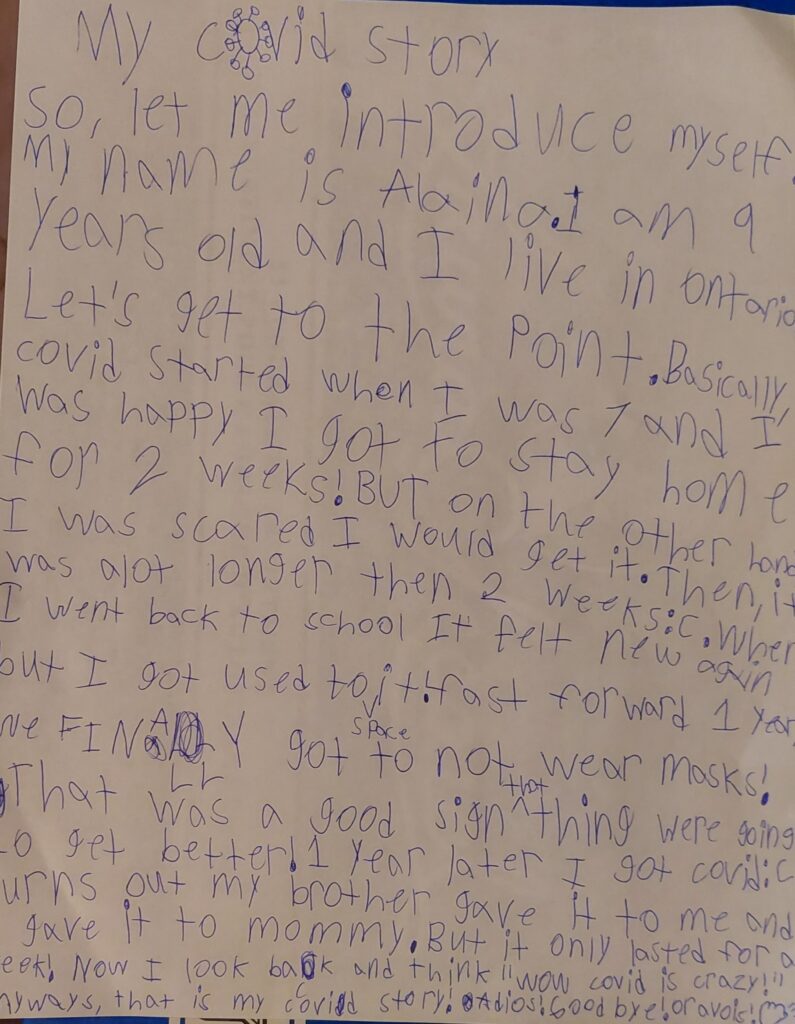 My covid story
So, let me introduce myself.
My name is Alaina.I am 9
years old and I live in ontario
Let's get to the Point.Basically,
covid started when I was 7 and I
was happy I got to stay home
for 2 weeks!BUT on the other hand
I was scared I would get it.Then,it
was alot longer then 2 weeks:C.When
I went back to school It felt new again
but I got used to it!fast forward 1 year,
we FINALLY got to not wear masks!
space
That was a good sign that thing were going
to get better!1 year later I got covid:C
urns out my brother gave it to me and
gave it to mommy.But it only lasted for a
eek! Now I look back and think "wow covid is crazy!"
nyways, that is my covid story! Adios!Good bye!oravois!